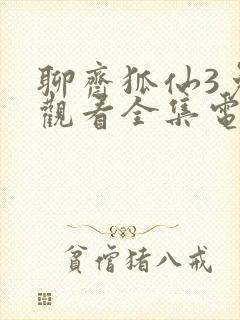 聊齋狐仙3
觀看全集電
貧僧猪八戒